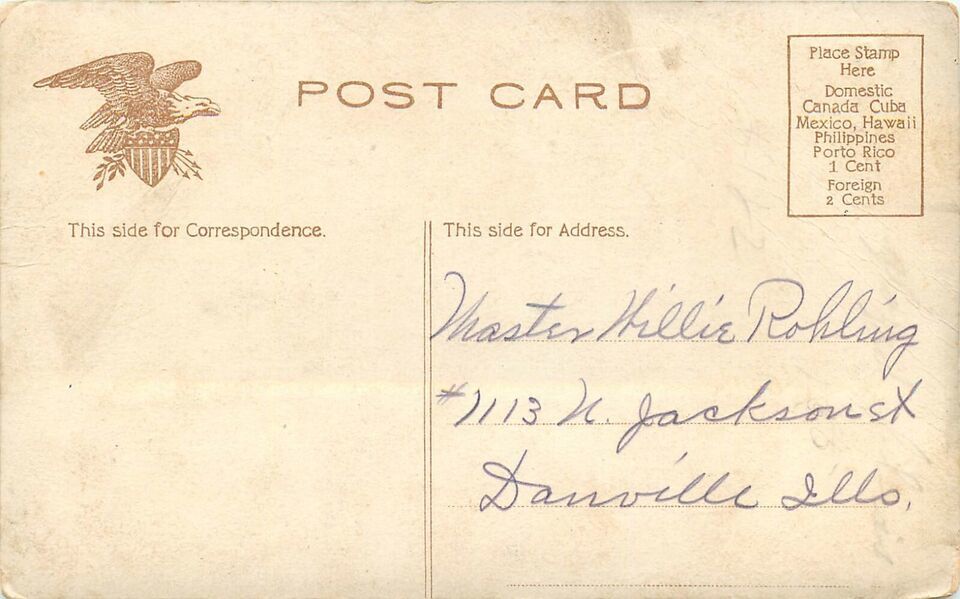 POST CARD
Place Stamp
Here
Domestic
Canada Cuba
Mexico, Hawaii
Philippines
Porto Rico
1 Cent
Foreign
2 Cents
This side for Correspondence.
This side for Address.
Master Willie Rohling
#1113 N. Jackson st
Danville Ills.